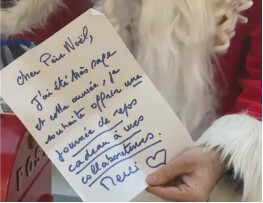 cher Père Noël,
j'ai été très sage
et cette année, je
souhaite offrir une
journée de repos
cadeau à mes
collaborateurs.
Merci ♡